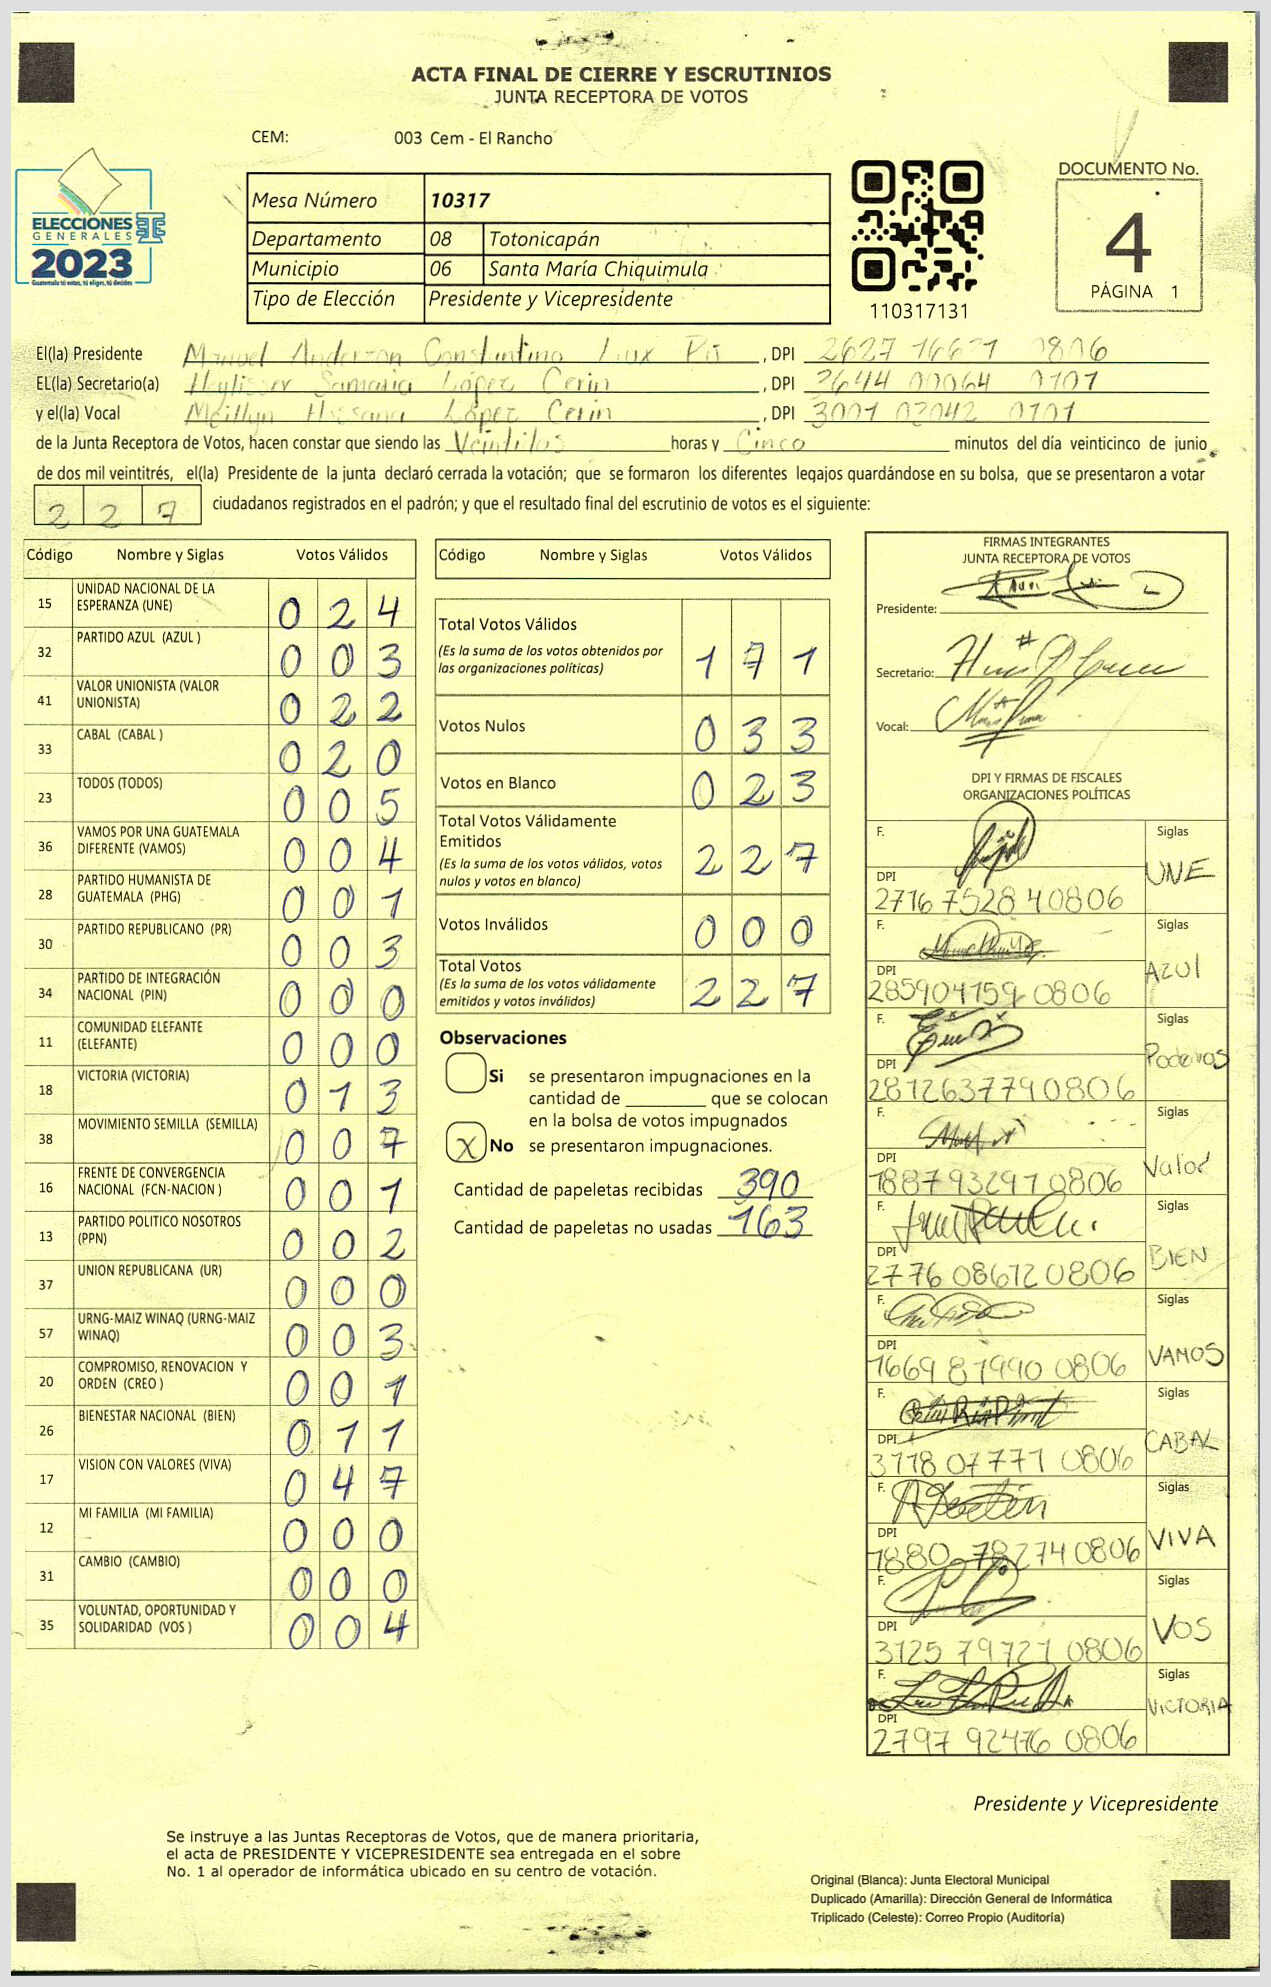 ACTA FINAL DE CIERRE Y ESCRUTINIOS
JUNTA RECEPTORA DE VOTOS
CEM: 003 Cem - El Rancho
ELECCIONES
GENERALES
2023
Guatemala tú votas, tú eliges, tú decides
Mesa Número 10317
Departamento 08 Totonicapán
Municipio 06 Santa María Chiquimula
Tipo de Elección Presidente y Vicepresidente
110317131
DOCUMENTO No.
4
PÁGINA 1
El(la) Presidente Manuel Anderzon Constantino Lux , DPI 0806
EL(la) Secretario(a) Samaria López Cerin , DPI 2644 00064 0101
y el(la) Vocal López Cerin , DPI 3001 02042 0101
de la Junta Receptora de Votos, hacen constar que siendo las horas y Cinco minutos del día veinticinco de junio
de dos mil veintitrés, el(la) Presidente de la junta declaró cerrada la votación; que se formaron los diferentes legajos guardándose en su bolsa, que se presentaron a votar
227 ciudadanos registrados en el padrón; y que el resultado final del escrutinio de votos es el siguiente:
Código Nombre y Siglas Votos Válidos
15 UNIDAD NACIONAL DE LA ESPERANZA (UNE) 024
32 PARTIDO AZUL (AZUL ) 003
41 VALOR UNIONISTA (VALOR UNIONISTA) 022
33 CABAL (CABAL ) 020
23 TODOS (TODOS) 005
36 VAMOS POR UNA GUATEMALA DIFERENTE (VAMOS) 004
28 PARTIDO HUMANISTA DE GUATEMALA (PHG) 001
30 PARTIDO REPUBLICANO (PR) 003
34 PARTIDO DE INTEGRACIÓN NACIONAL (PIN) 000
11 COMUNIDAD ELEFANTE (ELEFANTE) 000
18 VICTORIA (VICTORIA) 013
38 MOVIMIENTO SEMILLA (SEMILLA) 007
16 FRENTE DE CONVERGENCIA NACIONAL (FCN-NACION ) 001
13 PARTIDO POLITICO NOSOTROS (PPN) 002
37 UNION REPUBLICANA (UR) 000
57 URNG-MAIZ WINAQ (URNG-MAIZ WINAQ) 003
20 COMPROMISO, RENOVACION Y ORDEN (CREO ) 001
26 BIENESTAR NACIONAL (BIEN) 011
17 VISION CON VALORES (VIVA) 047
12 MI FAMILIA (MI FAMILIA) 000
31 CAMBIO (CAMBIO) 000
35 VOLUNTAD, OPORTUNIDAD Y SOLIDARIDAD (VOS ) 004
Código Nombre y Siglas Votos Válidos
Total Votos Válidos 171
(Es la suma de los votos obtenidos por
las organizaciones políticas)
Votos Nulos 033
Votos en Blanco 023
Total Votos Válidamente
Emitidos 227
(Es la suma de los votos válidos, votos
nulos y votos en blanco)
Votos Inválidos 000
Total Votos 227
(Es la suma de los votos válidamente
emitidos y votos inválidos)
Observaciones
Si se presentaron impugnaciones en la
cantidad de ________ que se colocan
en la bolsa de votos impugnados
X No se presentaron impugnaciones.
Cantidad de papeletas recibidas 390
Cantidad de papeletas no usadas 163
FIRMAS INTEGRANTES
JUNTA RECEPTORA DE VOTOS
Presidente:
Secretario:
Vocal:
DPI Y FIRMAS DE FISCALES
ORGANIZACIONES POLÍTICAS
F. Siglas UNE
DPI 2716 75284 0806
F. Siglas AZUL
DPI 285904159 0806
F. Siglas Podemos
DPI 2812637790806
F. Siglas Valor
DPI 1887932910806
F. Siglas BIEN
DPI 2776 08612 0806
F. Siglas VAMOS
DPI 1669 81990 0806
F. Siglas CABAL
DPI 3118 07771 0806
F. Siglas VIVA
DPI 1880 78274 0806
F. Siglas VOS
DPI 3125 79721 0806
F. Siglas VICTORIA
DPI 2797 92476 0806
Presidente y Vicepresidente
Se instruye a las Juntas Receptoras de Votos, que de manera prioritaria,
el acta de PRESIDENTE Y VICEPRESIDENTE sea entregada en el sobre
No. 1 al operador de informática ubicado en su centro de votación.
Original (Blanca): Junta Electoral Municipal
Duplicado (Amarilla): Dirección General de Informática
Triplicado (Celeste): Correo Propio (Auditoría)